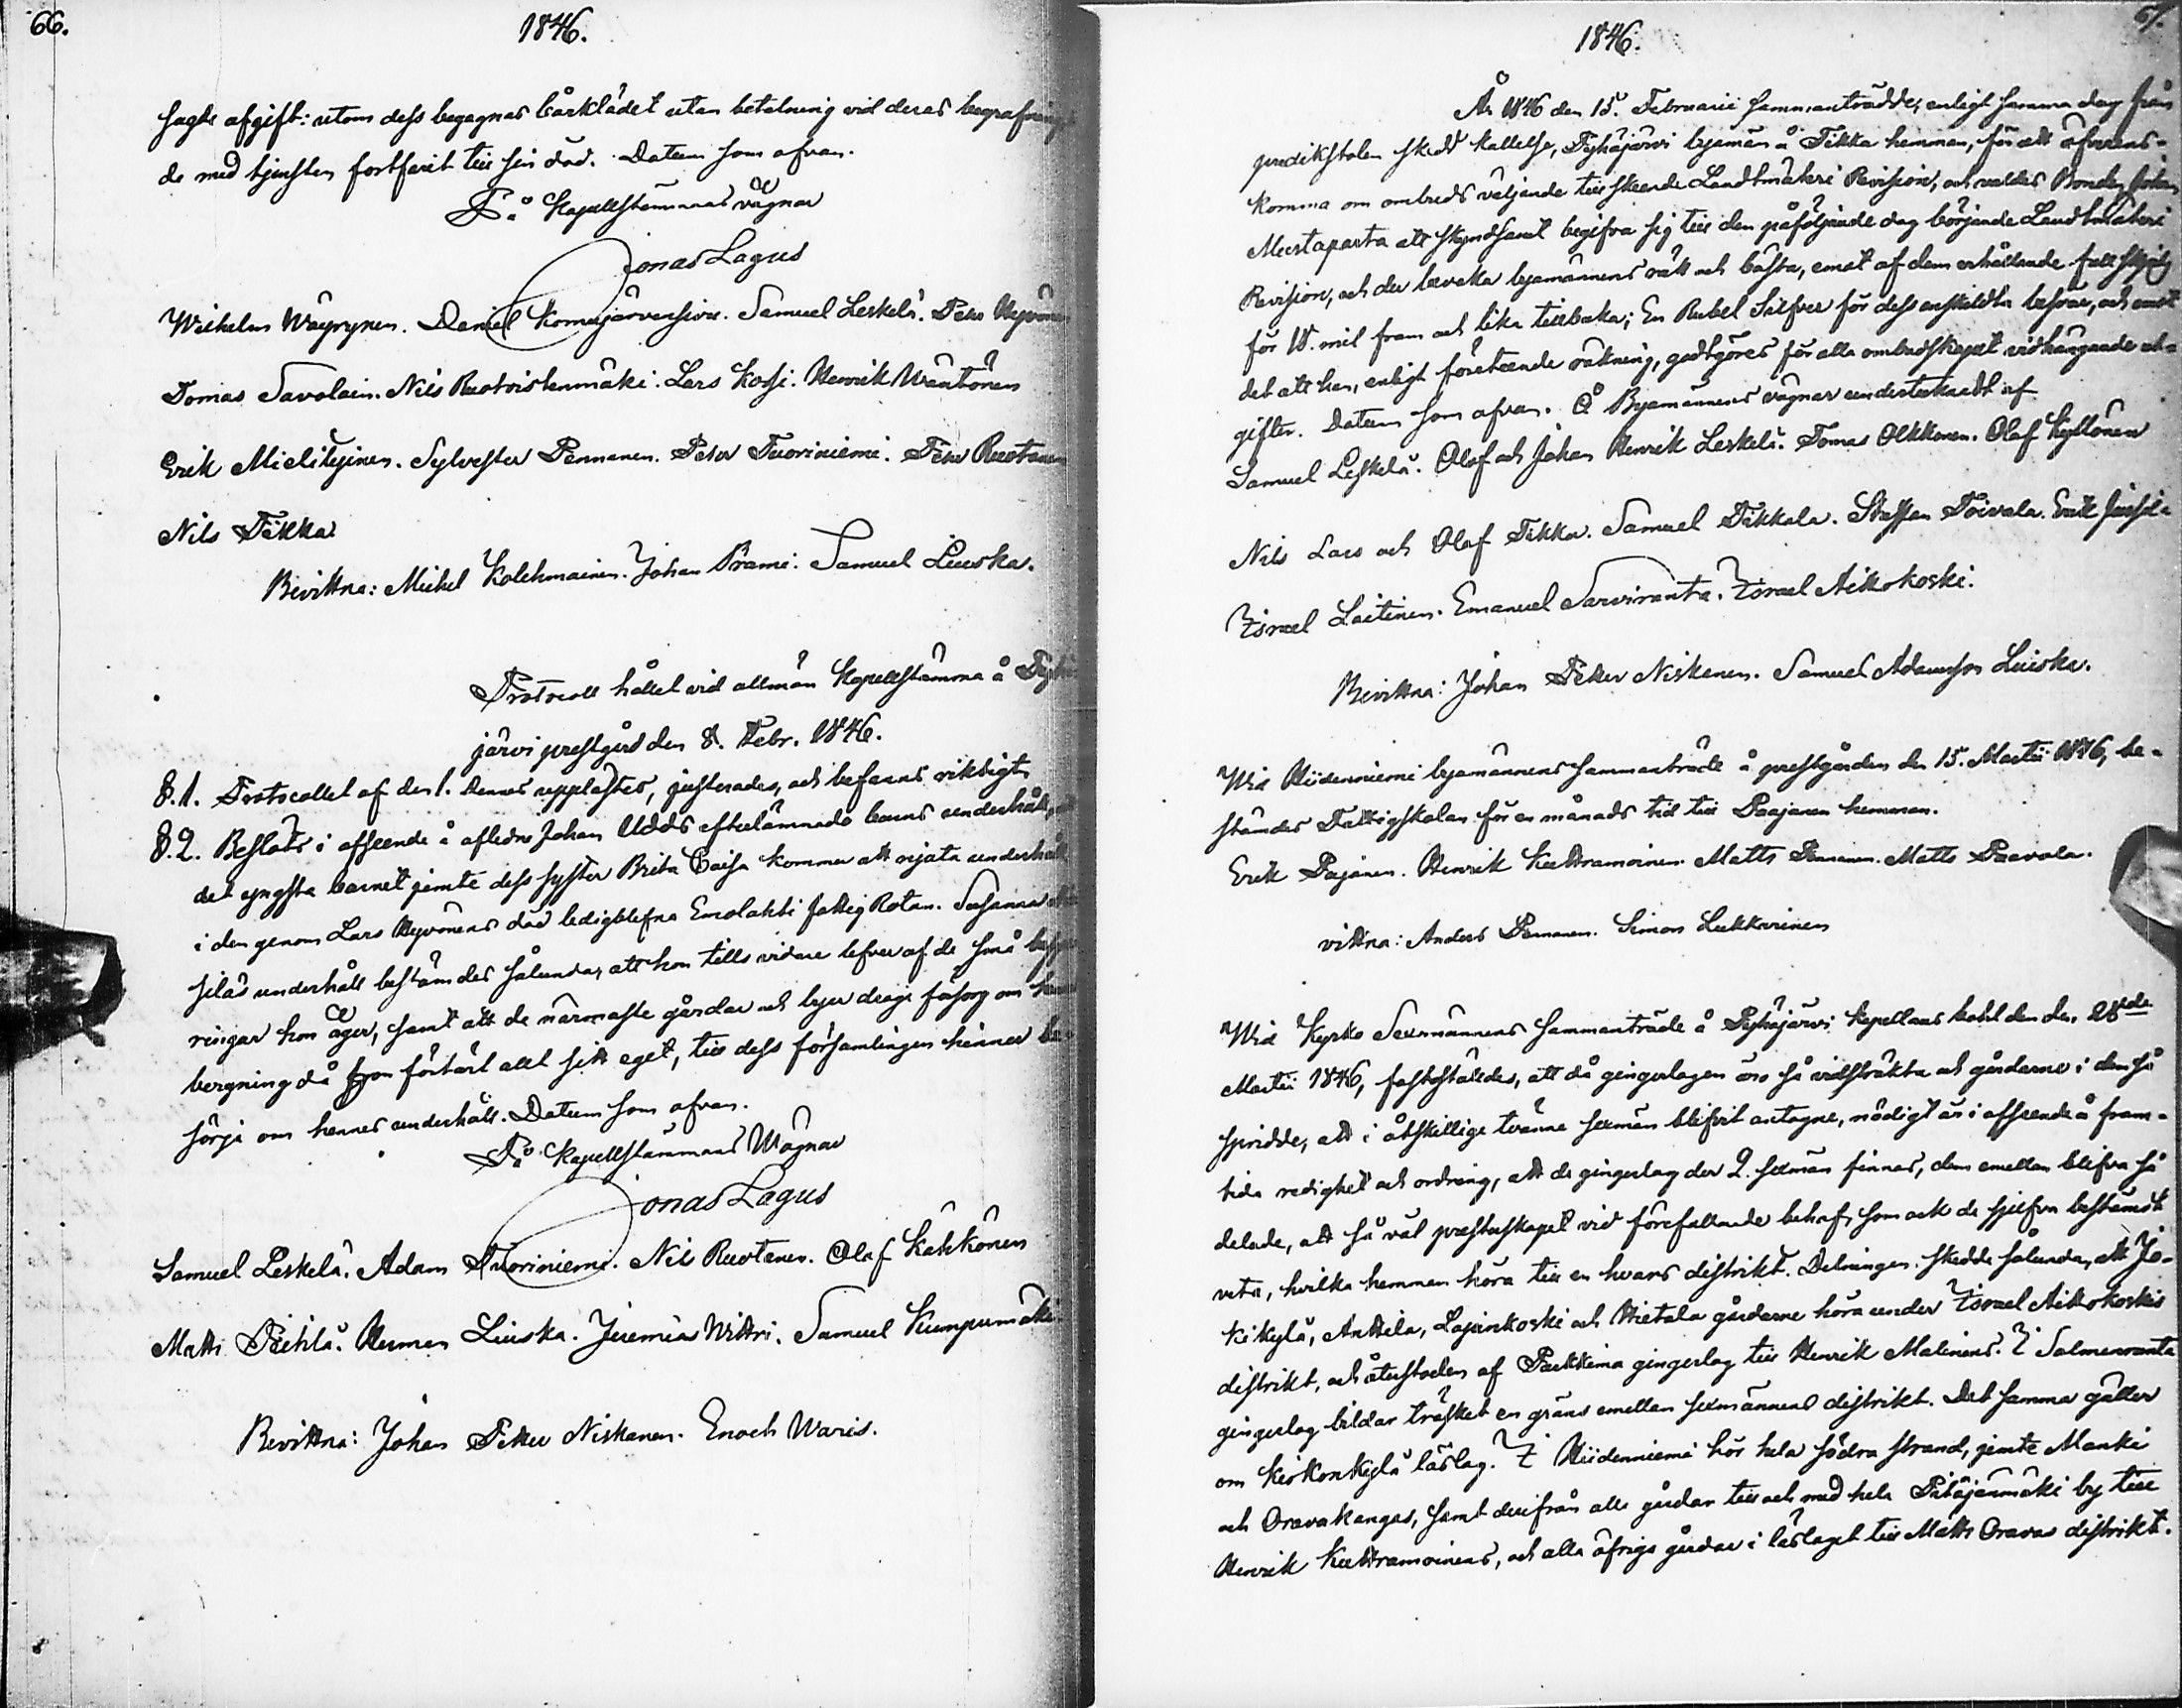 66.
1846.
sagde afgift: utom dess begagnas bårklädet utan betalning vid deras begrafning
de med tjensten fortfarit till sin död. Datum som ofvan.
På Kapellstämmans vägnar
Jonas Lagus
Wilhelm Wäyrynen. Daniel Komujärvensivu. Samuel Leskelä. Peter Hyvönen
Tomas Savolain. Nils Ruotoistenmäki. Lars Kossi. Henrik Wäntönen
Erik Mielityinen. Sylvester Pennanen. Peter Tuoriniemi. Peter Ruotanen
Nils Tikka
Bevittna: Mickel Kolehmainen. Johan Prami. Samuel Liuska.
Protocoll hållet vid allmän Kapellstämma å Pyhä
järvi prestgård den 8. Febr. 1846.
§.1. Protocollet af den 1. dennes upplästes, justerades, och befanns riktigt.
§.2. Beslöts i afseende å aflidne Johan Udds efterlämnade barns underhåll, att
det yngsta barnet jemte dess syster Brita Caisa kommer att njuta underhåll
i den genom Lars Hyvönens död ledigblefna Emolahti fattig Rotan. Susanna
siläs underhåll bestämdes sålunda, att hon tills vidare lefver af de små
ringar hon äger, samt att de närmaste gårdar och byar draga försorg om hennes
bergning då hon förtärt allt sitt eget, till dess församlingen hinner be-
sörja om hennes underhåll. Datum som ofvan.
På Kapellstämmans Wägnar
Jonas Lagus
Samuel Leskelä. Adam Tuoriniemi. Nils Ruotanen. Olaf Kähkönen
Matts Pihlä. Herman Liuska. Jeremias Wittri. Samuel Kumpumäki
Bevittna: Johan Petter Niskanen. Enoch Waris.
67.
1846.
År 1846 den 15. Februarii sammanträdde, enligt samma dag från
predikstolen skedd kallelse, Pyhäjärvi byamän å Tikka hemman, för att öfverens-
komma om ombuds väljande till skeende Landtmäteri Revision, och valdes Bonden Johan
Mustaparta att skyndsamt begifva sig till den påföljande dag börjande Landtmäteri
Revision, och der bevaka byamännens rätt och bästa, emot af dem erhållande
för 18. mil fram och lika tillbaka; En Rubel Silfver för dess enskildta besvär, och emot
det att han, enligt företeende räkning, godtgöres för alla ombudskapet vidhängande ut-
gifter. Datum som ofvan. På Byamännens vägnar undertecknadt af
Samuel Leskelä. Olof och Johan Henrik Leskelä. Tomas Olkkonen. Olaf Kyllönen
Nils Lars och Olof Tikka. Samuel Tikkala. Staffan Toivola. Erik
Israel Laitinen. Emanuel Sarviranta. Israel Aittokoski.
Bevittna: Johan Petter Niskanen. Samuel Adamsson Liuska.
Wid Hiidenniemi byamännens sammanträde å prestgården den 15. Martii 1846, be-
stämdes Fattigskolan för en månads tid till Paajanen hemman.
Erik Pajanen. Henrik Kuttramoinen. Matts Pananen. Matts Paavola.
vittna: Anders Pananen. Simon Lukkarinen
Wid Kyrko Sexmännens sammanträde å Pyhäjärvi Kapellans bohl den den 28de
Martii 1846, fastställdes, att då gingerlagen äro så vidsträkta och gårdarne i dem så
spridde, att i åtskillige tvänne sexmän blifvit antagne, nödigt är i afseende å fram-
tida redighet och ordning, att de gingerlag der 2. sexmän finnas, dem emellan blifva så
delade, att så väl presterskapet vid förefallande behof, som ock de sjelfva bestämdt
veta, hvilka hemman höra till en hvars distrikt. Delningen skedde sålunda, att Jo-
kikylä, Anttila, Lapinkoski och Hietala gårdarne höra under Israel Aittokoskis
distrikt, och återstoden af Parkkima gingerlag till Henrik Malinens. I Salmenranta
gingerlag bildar träsket en gräns emellan sexmännens distrikt. Det samma gäller
om Kirkonkylä läslag. I Hiidenniemi hör hela södra strand, jemte Manki
och Oravakangas, samt derifrån alla gårdar till och med hela Pitäjänmäki by till
Henrik Kuttramoinens, och alla öfriga gårdar i läslaget till Matts Oravas distrikt.